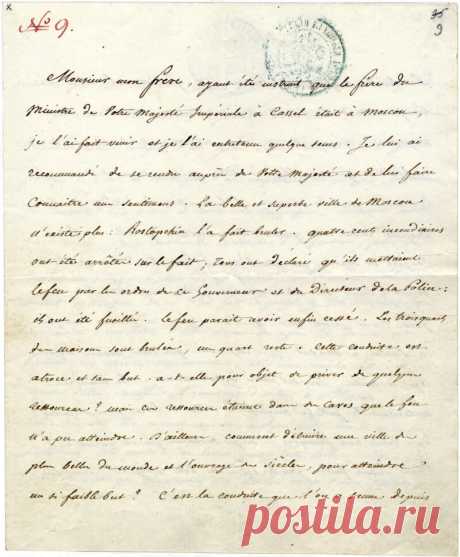 x
№ 9.
35
9
Monsieur mon frère, ayant été instruit que le frère du
Ministre de Votre Majesté Impériale à Cassel était à Moscou,
je l'ai fait venir et je l'ai entretenu quelque tems. Je lui ai
recommandé de se rendre auprès de Votre Majesté et de lui faire
connaitre mes sentimens. La belle et superbe ville de Moscou
n'existe plus: Rostopchin l'a fait bruler. quatre cents incendiaires
ont été arrêtés sur le fait; tous ont déclaré qu'ils mettaient
le feu par les ordres de ce Gouverneur et du Directeur de la Police:
ils ont été fusillés. le feu parait avoir enfin cessé. Les trois quarts
des maisons sont brulées, un quart reste. Cette conduite est
atroce et sans but. a-t-elle pour objet de priver de quelques
ressources? mais ces ressources étaient dans des caves que le feu
n'a pu atteindre. D'ailleurs, comment détruire une ville des
plus belles du monde et l'ouvrage des siècles, pour atteindre
un si faible but? C'est la conduite que l'on a tenue depuis
postila.ru